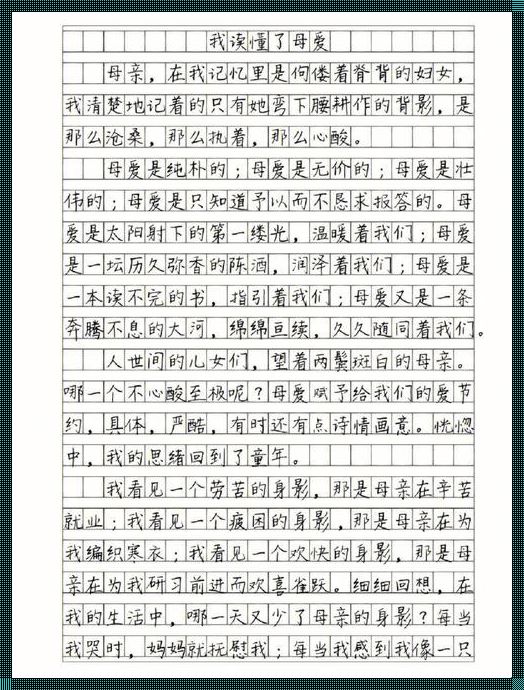 我读懂了母爱
母亲，在我记忆里是佝偻着脊背的妇女，
我清楚地记着的只有她弯下腰耕作的背影，是
那么沧桑，那么执着，那么心酸。
母爱是纯朴的；母爱是无价的；母爱是壮
伟的；母爱是只知道予以而不恳求报答的。母
爱是太阳射下的第一缕光，温暖着我们；母爱
是一坛历久弥香的陈酒，润泽着我们；母爱是
一本读不完的书，指引着我们；母爱又是一条
奔腾不息的大河，绵绵亘续，久久随同着我们。
人世间的儿女们，望着两鬓斑白的母亲。
哪一个不心酸至极呢？母爱赋予给我们的爱节
约，具体，严酷，有时还有点诗情画意。恍惚
中，我的思绪回到了童年。
我看见一个劳苦的身影，那是母亲在辛苦
就业；我看见一个疲困的身影，那是母亲在为
我编织寒衣；我看见一个欢快的身影，那是母
亲在为我研习前进而欢喜雀跃。细细回想，在
我的生活中，哪一天又少了母亲的身影？每当
我哭时，妈妈就抚慰我；每当我感到我像一只